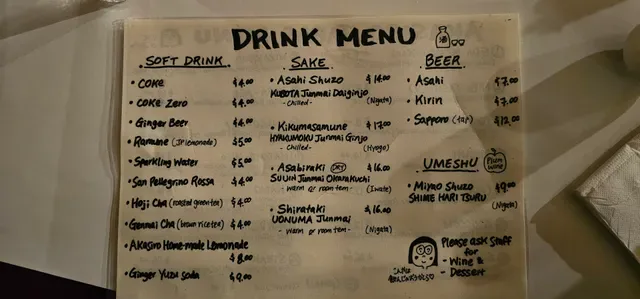 DRINK MENU
酒
SOFT DRINK
• COKE $4.00
• COKE Zero $4.00
• Ginger Beer $4.00
• Ramune (JP lemonade) $5.00
• Sparkling Water $5.00
• San Pellegrino Rossa $4.00
• Hoji Cha (roasted green tea) $4.00
• Genmai Cha (brown rice tea) $4.00
• AKASIRO Home-made Lemonade
$8.00
• Ginger Yuzu Soda $9.00
SAKE
• Asahi Shuzo $14.00
KUBOTA Junmai Daiginjo
- Chilled - (Nigata)
• Kikumasamune $17.00
HYAKUMOKU Junmai Ginjo
- Chilled - (Hyogo)
• Asabiraki DRY $16.00
SUIJIN Junmai Okarakuchi
- warm or room tem - (Iwate)
• Shirataki $16.00
UONUMA Junmai
- warm or room tem - (Nigata)
BEER
• Asahi $7.00
• Kirin $7.00
• Sapporo (tap) $12.00
UMESHU
Plum wine
• Miyao Shuzo $9.00
SHIME HARI TSURU
(Nigata)
Please ask Staff
for
- Wine &
- Dessert